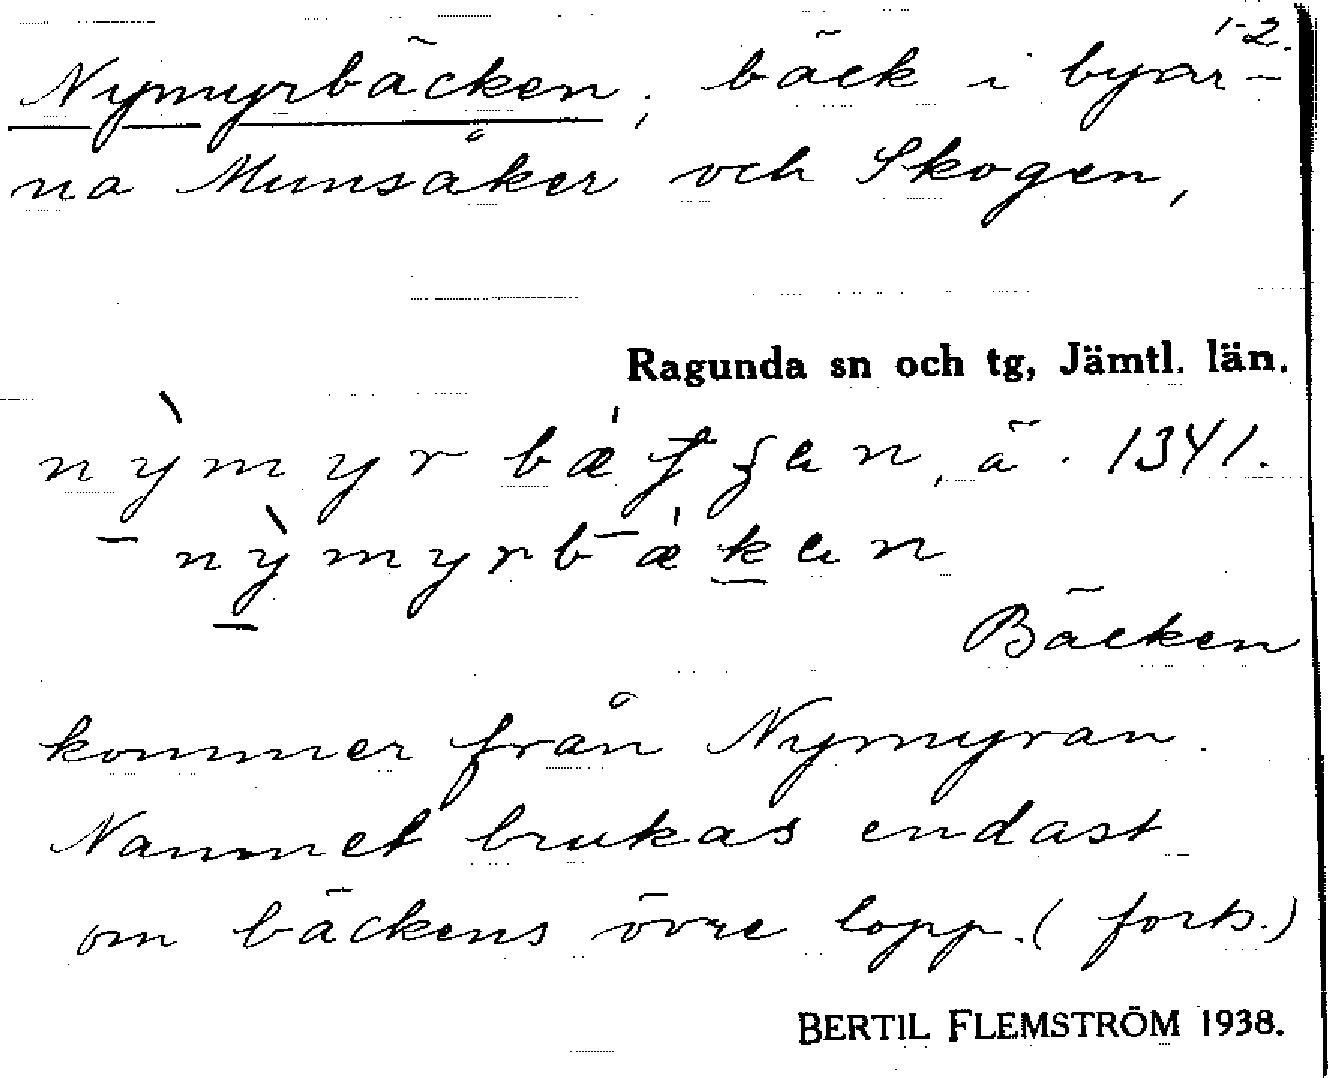 1-2.
Nymyrbäcken, bäck i byar-
na Munsåker och Skogen,
Ragunda sn och tg, Jämtl. län.
ä. 1341.
Bäcken
kommer från Nymyran.
Namnet brukas endast
om bäckens övre lopp. (forts.)
BERTIL FLEMSTRÖM 1938.